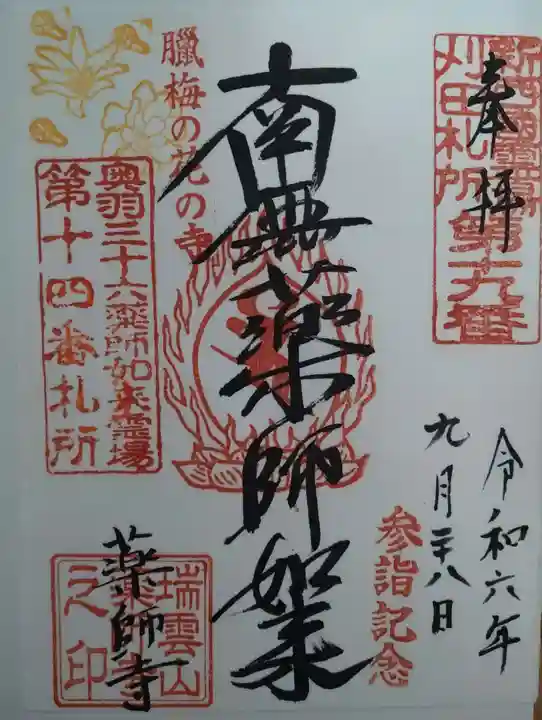 奉拝
刈田札所第十九番
令和六年
九月二十八日
参詣記念
南無薬師如来
臘梅の花の寺
奥羽三十六薬師如来霊場
第十四番札所
瑞雲山
之印
薬師寺